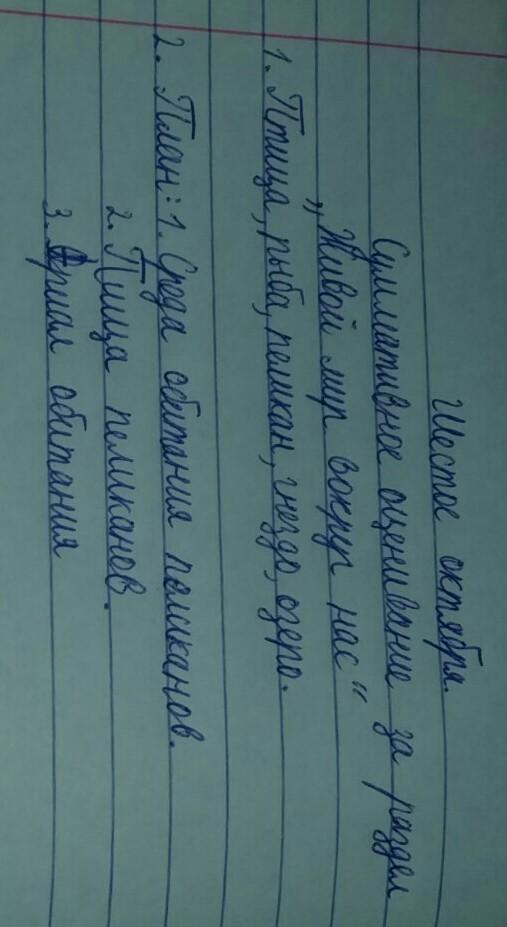 Шестое октября.
Суммативное оценивание за раздел
„Живой мир вокруг нас“
1. Птица, рыба, пеликан, гнездо, озеро.
2. План: 1. Среда обитания пеликанов.
2. Пища пеликанов.
3. Ариал обитания